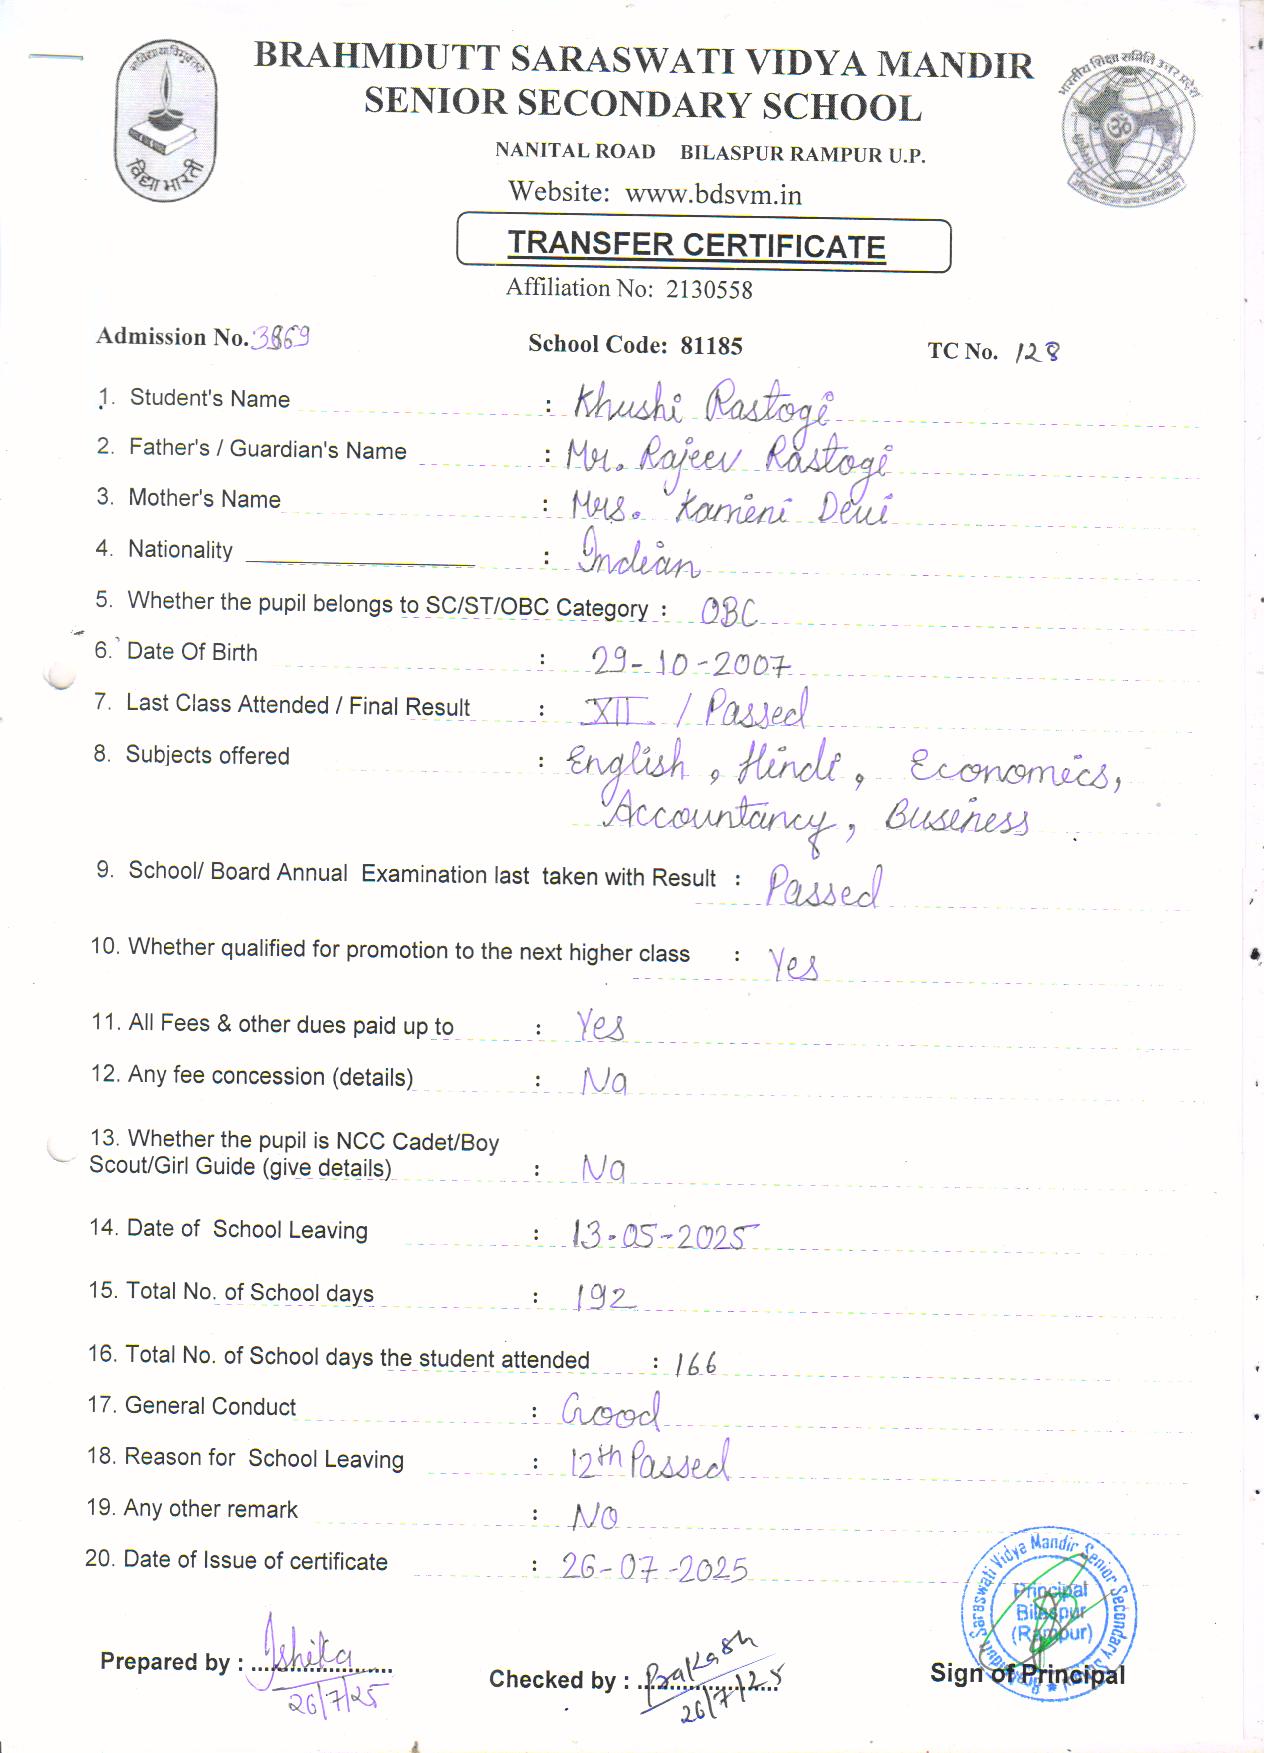 BRAHMDUTT SARASWATI VIDYA MANDIR
SENIOR SECONDARY SCHOOL
NANITAL ROAD BILASPUR RAMPUR U.P.
विद्या भारती
भारतीय शिक्षा समिति उत्तर प्रदेश
Website: www.bdsvm.in
TRANSFER CERTIFICATE
Affiliation No: 2130558
Admission No. 3869 School Code: 81185 TC No. 128
1. Student's Name : Khushi Rastogi
2. Father's / Guardian's Name : Mr. Rajeev Rastogi
3. Mother's Name : Mrs. Kamini Devi
4. Nationality : Indian
5. Whether the pupil belongs to SC/ST/OBC Category : OBC
6. Date Of Birth : 29-10-2007
7. Last Class Attended / Final Result : XII / Passed
8. Subjects offered : English, Hindi, Economics,
Accountancy, Business
9. School/ Board Annual Examination last taken with Result : Passed
10. Whether qualified for promotion to the next higher class : Yes
11. All Fees & other dues paid up to : Yes
12. Any fee concession (details) : No
13. Whether the pupil is NCC Cadet/Boy
Scout/Girl Guide (give details) : No
14. Date of School Leaving : 13-05-2025
15. Total No. of School days : 192
16. Total No. of School days the student attended : 166
17. General Conduct : Good
18. Reason for School Leaving : 12th Passed
19. Any other remark : NO
20. Date of Issue of certificate : 26-07-2025
Saraswati Vidya Mandir Senior Secondary
Principal
Bilaspur
(Rampur)
Prepared by : Ishika Checked by : Prakash Sign of Principal
26/7/25 26/7/25